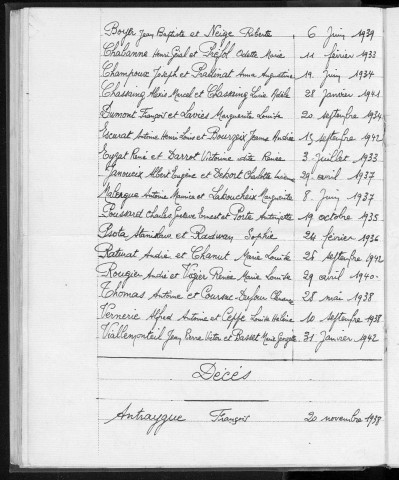 Boyer Jean Baptiste et Neige Roberte 6 Juin 1939
Chabanne Henri Géal et Préfol Odette Marie 11 février 1933
Champoux Joseph et Rabinat Anna Augustine 19 Juin 1934
Chassaing Alexis Marcel et Chassaing Luce Adèle 28 Janvier 1941
Dumont François et Laviès Marguerite Louise 20 septembre 1934
Escurat Antoine Henri Louis et Bourzeix Jeanne Andrée 15 septembre 1942
Eyzat René et Darrot Victorine dite Renée 3 Juillet 1933
Janoueix Albert Eugène et Debort Charlotte 29 avril 1937
Malergue Antoine Maurice et Labouheix Marguerite 8 Juin 1937
Poussard Charles Gustave Ernest et Porte Antoinette 19 octobre 1935
Psota Stanislaus et Radwan Sophie 24 février 1936
Ratinat André et Chanut Marie Louise 26 septembre 1942
Rougier André et Vizier Renée Marie Louise 29 avril 1940
Thomas Antoine et Coursac 28 mai 1938
Vernerie Alfred Antoine et Peffe Louise Hélène 10 septembre 1938
Viallemonteil Jean Pierre Victor et Basset Marie 31 Janvier 1942
Décés
Antraygue François 20 novembre 1938